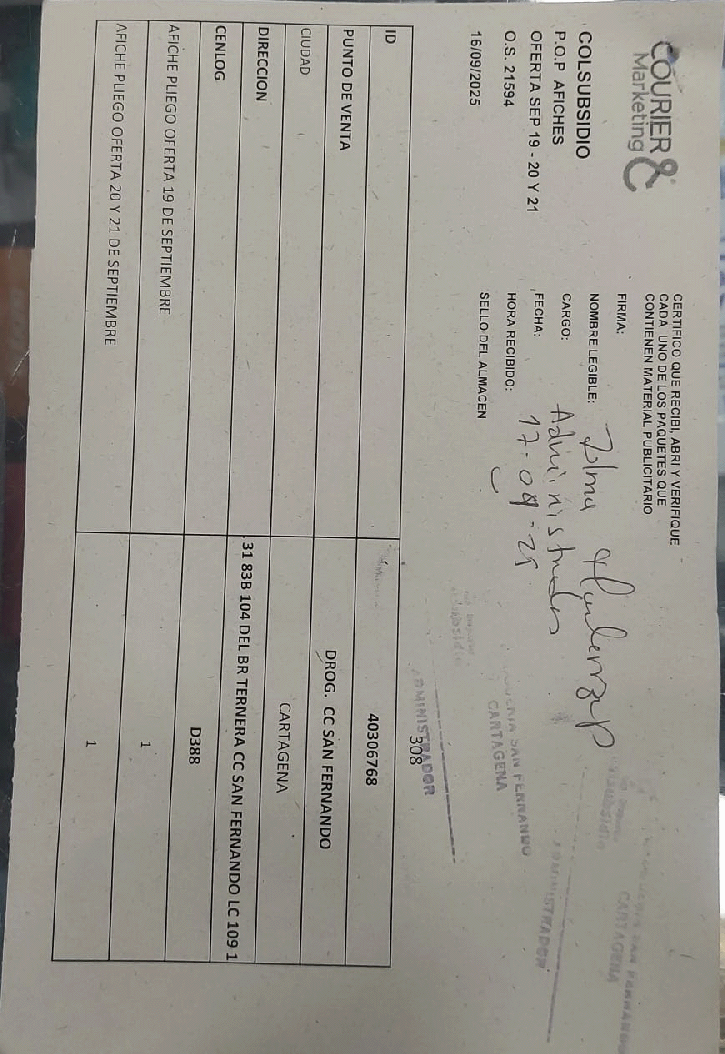 COURIER &
Marketing
COLSUBSIDIO
P.O.P AFICHES
OFERTA SEP 19 - 20 Y 21
O.S. 21594
16/09/2025
CERTIFICO QUE RECIBI, ABRI Y VERIFIQUE
CADA UNO DE LOS PAQUETES QUE
CONTIENEN MATERIAL PUBLICITARIO
FIRMA:
NOMBRE LEGIBLE: Zulma
CARGO: Administrador
FECHA: 17-09-25
HORA RECIBIDO:
SELLO DEL ALMACEN
SAN FERNANDO
CARTAGENA
ADMINISTRADOR
SAN FERNANDO
CARTAGENA
ADMINISTRADOR
308
ID 40306768
PUNTO DE VENTA DROG. CC SAN FERNANDO
CIUDAD CARTAGENA
DIRECCION 31 83B 104 DEL BR TERNERA CC SAN FERNANDO LC 109 1
CENLOG D388
AFICHE PLIEGO OFERTA 19 DE SEPTIEMBRE 1
AFICHE PLIEGO OFERTA 20 Y 21 DE SEPTIEMBRE 1